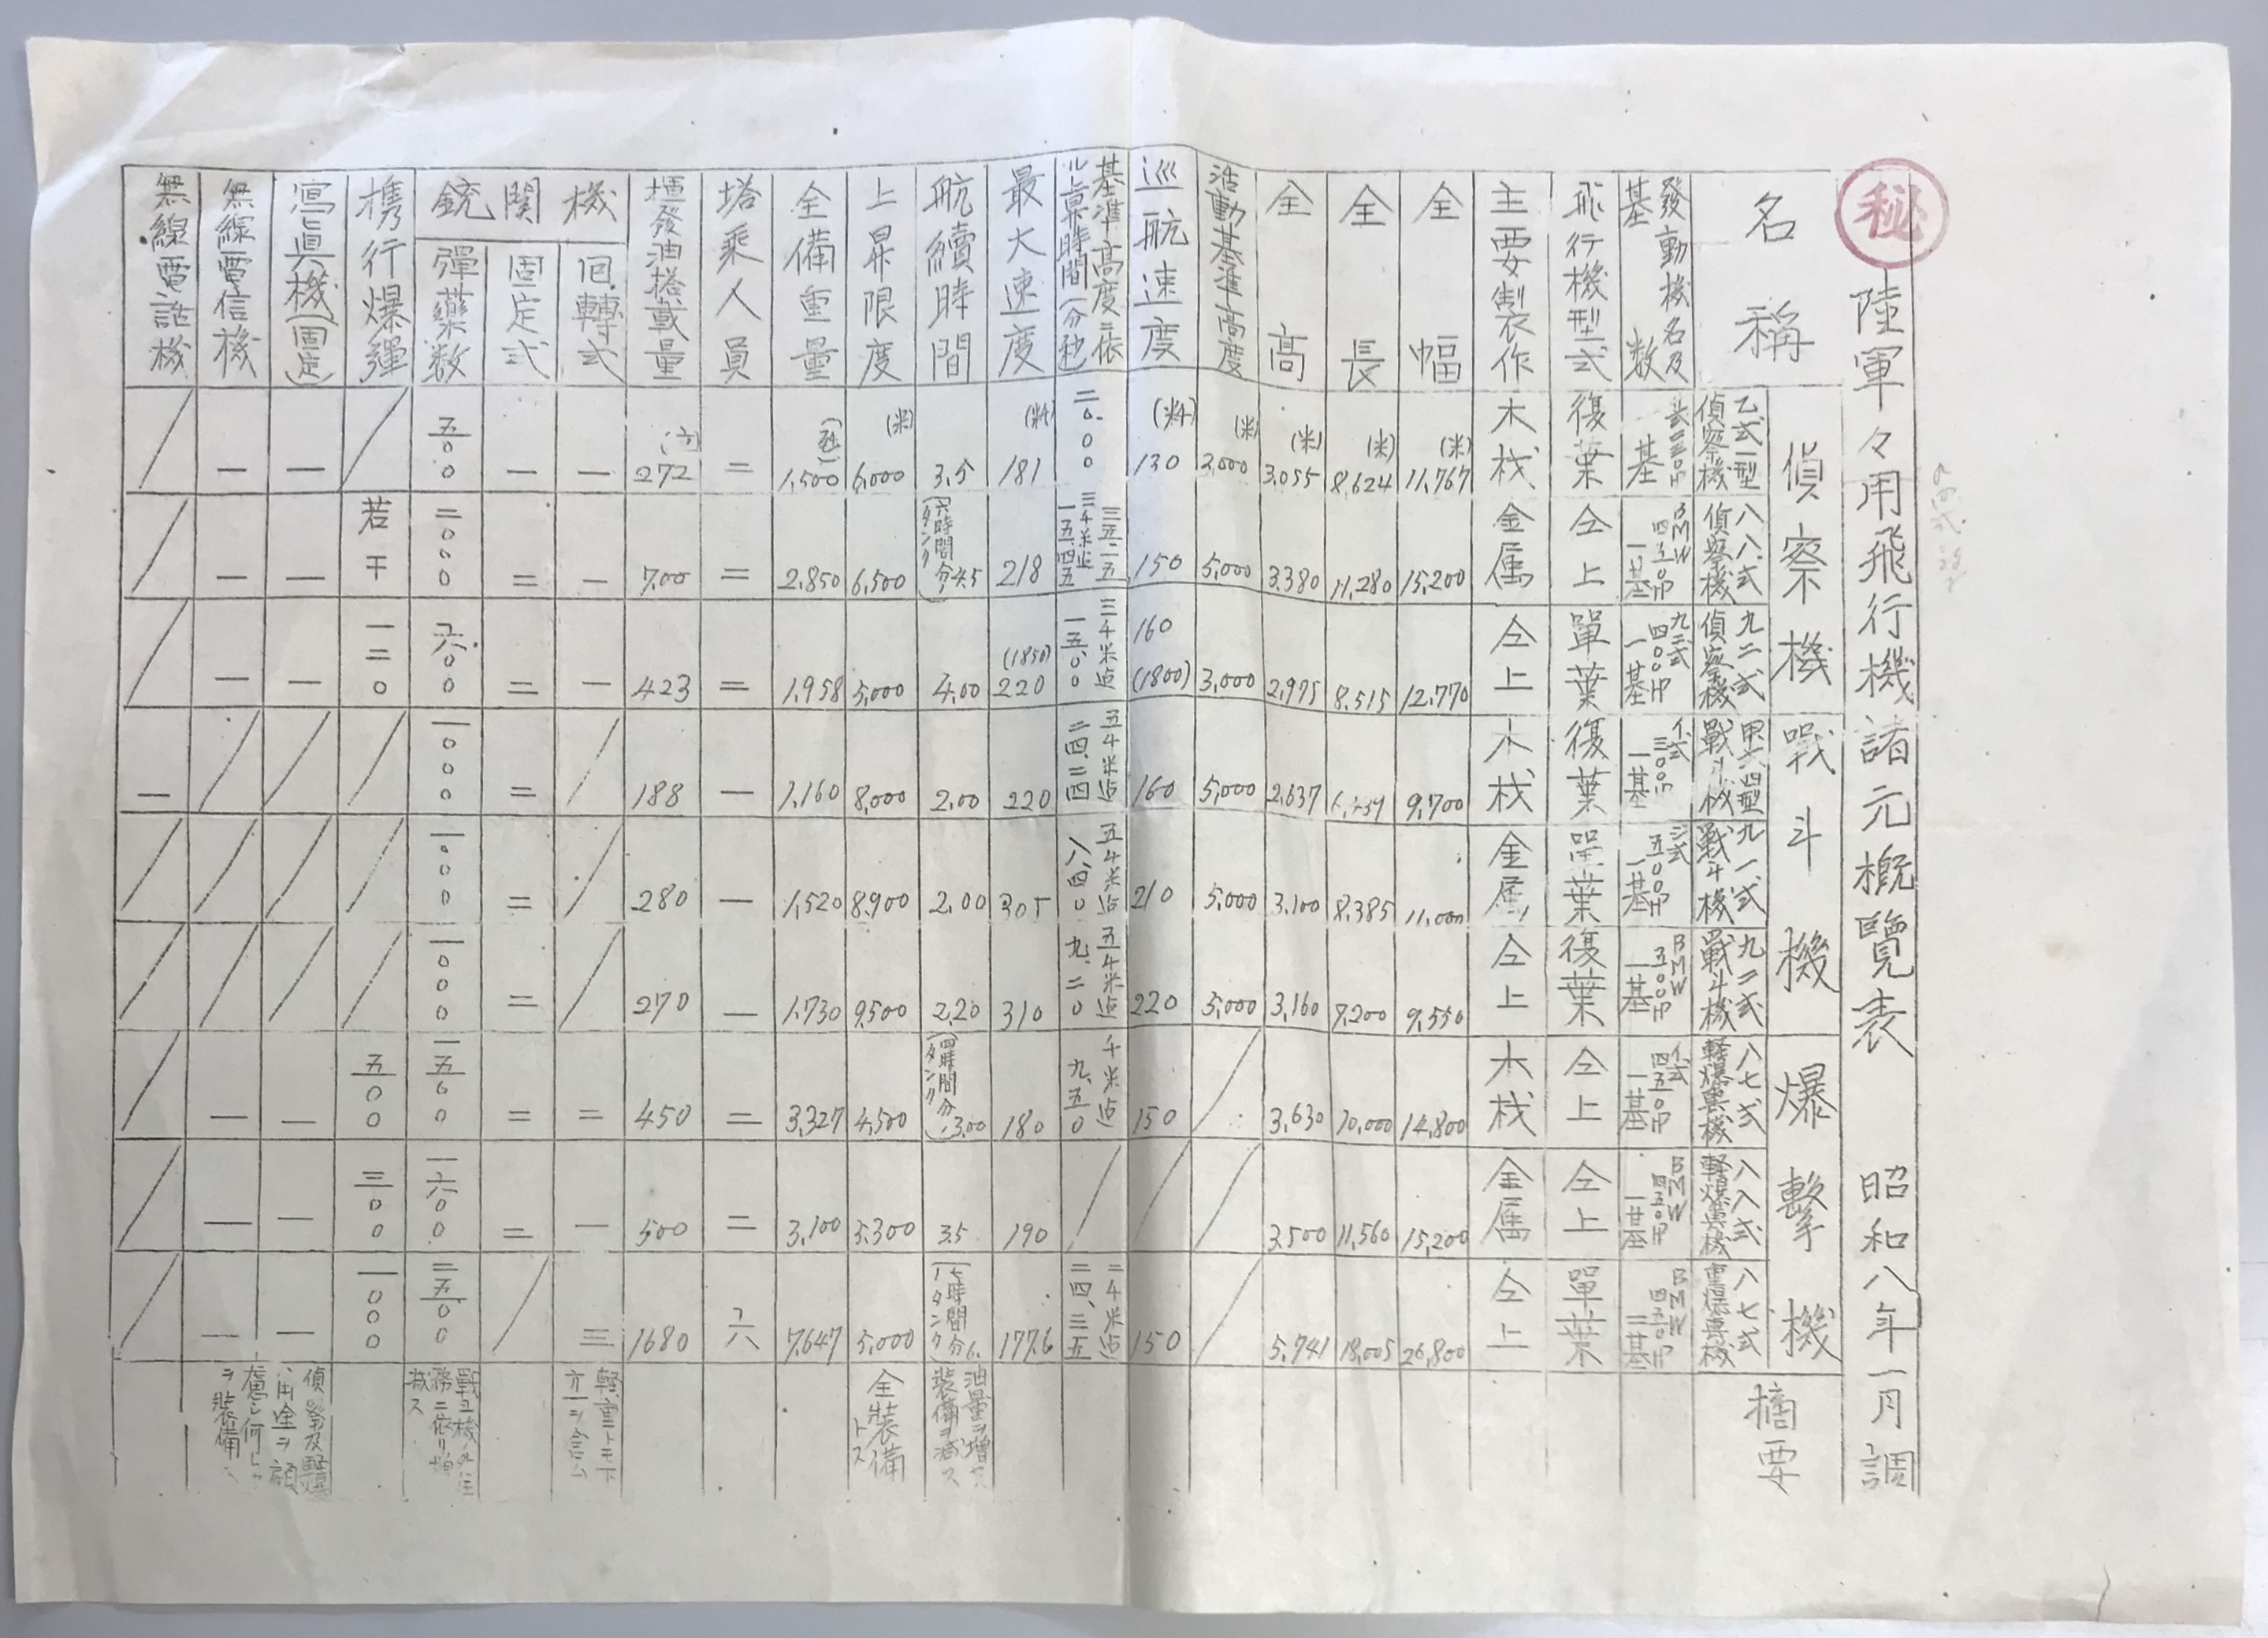 秘
陸軍々用飛行機諸元概覽表 昭和八年一月調
名稱 偵察機 戰斗機 爆擊機 摘要
乙式一型偵察機 八八式偵察機 九二式偵察機 甲式四型戰斗機 九一式戰斗機 九二式戰斗機 八七式軽爆擊機 八八式軽爆擊機 八七式重爆擊機
發動機名及基數 基 BMW四五〇HP一基 九二式四〇〇HP一基 イ式三〇〇HP一基 ジ式五〇〇HP一基 BMW 五〇〇HP一基 イ式四五〇HP一基 BMW四五〇HP一基 BMW四五〇HP二基
飛行機型式 複葉 仝上 單葉 複葉 單葉 複葉 仝上 仝上 單葉
主要製作 木材 金属 仝上 木材 金属 仝上 木材 金属 仝上
全幅 (米) 11,767 15,200 12,770 9,700 11,000 9,550 14,800 15,200 26,800
全長 (米) 8,624 11,280 8,515 8,385 7,200 10,000 11,560 18,005
全高 (米) 3,055 3,380 2,975 2,637 3,100 3,160 3,630 3,500 5,741
活動基準高度 (米) 3,000 5,000 3,000 5,000 5,000 5,000
巡航速度 (粁) 130 150 160 (1800) 160 210 220 150 150
基準高度ニ依ル上昇時間(分秒) 二〇.〇〇 三千米迄一五.四五 三千米迄一五.〇〇 五千米迄二四.二四 五千米迄八.四〇 五千米迄九.二〇 千米迄九.五〇 二千米迄二四.二五
最大速度 (粁) 181 218 (1850) 220 220 305 310 180 190 177.6
航續時間 3.5 (六時間分タンク) 4.5 4.00 2.00 2.00 2.20 (四時間分タンク) 3.00 3.5 (七時間分タンク) 6. 油量ヲ増セバ装備ヲ減ス
上昇限度 (米) 6,000 6,500 5,000 8,000 8,900 9,500 4,500 5,300 5,000 全装備トス
全備重量 (瓩) 1,500 2,850 1,958 1,160 1,520 1,730 3,327 3,100 7,647
塔乘人員 二 二 二 一 一 一 二 二 六
揮發油搭載量 (立) 272 700 423 188 280 270 450 500 1680
機関銃 回轉式 一 一 一 二 一 三 軽重トモ下方一ヲ含ム
固定式 一 二 二 二 二 二 二 二
彈藥数 五〇〇 二〇〇〇 一六〇〇 一〇〇〇 一〇〇〇 一〇〇〇 一五〇〇 一六〇〇 二五〇〇 戰斗機ノ外任務ニ依リ増減ス
携行爆彈 若干 一二〇 五〇〇 三〇〇 一〇〇〇
寫眞機(固定) 一 一 一 一 一 一 偵察及軽爆
無線電信機 一 一 一 一 一 一
無線電話機 一